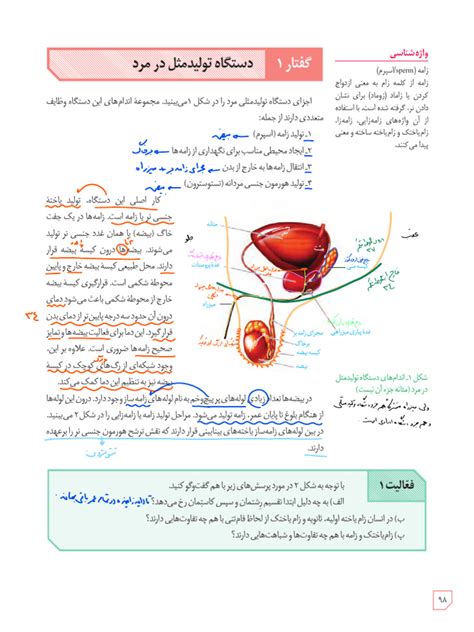 گفتار ۱
دستگاه تولیدمثل در مرد
واژه‌شناسی
زامه (sperm/اسپرم)
زامه از کلمه زام به معنی ازدواج
کردن یا زاماد (زوماد) برای نشان
دادن نر، گرفته شده است. با استفاده
از آن واژه‌های زامه‌زایی، زامه‌زا،
زام‌یاختک و زام‌یاخته ساخته و معنی
پیدا می‌کنند.
اجزای دستگاه تولیدمثلی مرد را در شکل ۱ می‌بینید. مجموعهٔ اندام‌های این دستگاه وظایف
متعددی دارند از جمله:
۱ـ تولید زامه (اسپرم) بیضه
۲ـ ایجاد محیطی مناسب برای نگهداری از زامه‌ها
۳ـ انتقال زامه‌ها به خارج از بدن
۴ـ تولید هورمون جنسی مردانه (تستوسترون) بیضه
کار اصلی این دستگاه، تولید یاختهٔ
جنسی نر یا زامه است. زامه‌ها در یک جفت
خاگ (بیضه) یا همان غدد جنسی نر تولید
می‌شوند. بیضه‌ها درون کیسهٔ بیضه قرار
دارند. محل طبیعی کیسهٔ بیضه خارج و پایین
محوطهٔ شکمی است. قرارگیری کیسهٔ بیضه
خارج از محوطهٔ شکمی باعث می‌شود دمای
درون آن حدود سه درجه پایین‌تر از دمای بدن
۳۴
قرار گیرد. این دما برای فعالیت بیضه‌ها و تمایز
صحیح زامه‌ها ضروری است. علاوه بر این،
وجود شبکه‌ای از رگ‌های کوچک در کیسهٔ
بیضه نیز به تنظیم این دما کمک می‌کند.
مجرای زامه‌بر
غدهٔ پیازی میزراهی
بیضه
کیسه بیضه
شکل ۱ـ اندام‌های دستگاه تولیدمثل
در مرد (مثانه جزء آن نیست)
در بیضه‌ها تعداد زیادی لوله‌های پر پیچ‌وخم به نام لوله‌های زامه‌ساز وجود دارد. درون این لوله‌ها
از هنگام بلوغ تا پایان عمر، زامه تولید می‌شود. مراحل تولید زامه یا زامه‌زایی را در شکل ۲ می‌بینید.
در بین لوله‌های زامه‌ساز یاخته‌های بینابینی قرار دارند که نقش ترشح هورمون جنسی نر را برعهده
دارند.
فعالیت ۱
با توجه به شکل ۲ در مورد پرسش‌های زیر با هم گفت‌وگو کنید.
الف) به چه دلیل ابتدا تقسیم رشتمان و سپس کاستمان رخ می‌دهد؟
ب) در انسان زام یاخته اولیه، ثانویه و زام یاختک از لحاظ فام‌تنی با هم چه تفاوت‌هایی دارند؟
پ) زام‌یاختک و زامه با هم چه تفاوت‌ها و شباهت‌هایی دارند؟
۹۸